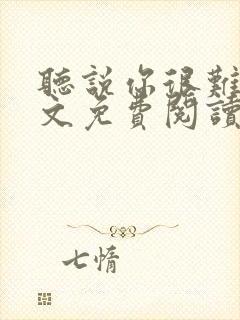 聽說你很難
文免費閱讀
七惰